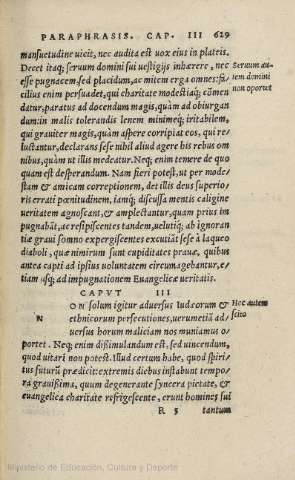 PARAPHRASIS. CAP. III 629
mansuetudine vicit, nec audita est uox eius in plateis.
Decet itaq; seruum domini sui uestigijs inhærere, nec
esse pugnacem, sed placidum, ac mitem erga omnes: fa-
cilius enim persuadet, qui charitate modestiaq; cōmen
datur, paratus ad docendum magis, quàm ad obiurgan
dum: in malis tolerandis lenem minimeq; irritabilem,
qui grauiter magis, quàm aspere corripiat eos, qui re-
luctantur, declarans sese nihil aliud agere his rebus om
nibus, quàm ut illis medeatur. Neq; enim temere de quo
quam est desperandum. Nam fieri potest, ut per mode-
stam & amicam correptionem, det illis deus superio-
ris errati pœnitudinem, iamq; discussa mentis caligine
ueritatem agnoscant, & amplectantur, quam prius im
pugnabāt, ac resipiscentes tandem, uelutiq; ab ignoran
tiæ graui somno expergiscentes excutiāt sese à laqueo
diaboli, quæ nimirum sunt cupiditates prauæ, quibus
antea capti ad ipsius uoluntatem circumagebantur, e-
tiam usq; ad impugnationem Euangelicæ ueritatis.
Seruum au-
tem domini
non oportet
CAPVT III.
NON solum igitur aduersus Iudæorum &
ethnicorum persecutiones, uerumetiā ad-
uersus horum maliciam nos muniamus o-
portet. Neq; enim dissimulandum est, sed uincendum,
quod uitari non potest. Illud certum habe, quod spiri-
tus futurū prædicit: extremis diebus instabunt tempo
ra grauissima, quum degenerante syncera pietate, &
euangelica charitate refrigescente, erunt homines sui
Hoc autem
scito
R 5 tantum
Ministerio de Educación, Cultura y Deporte